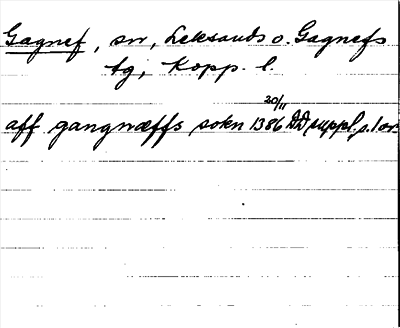 Gagnef, sn, Leksands o. Gagnefs
tg, Kopp. l.
20/11
aff gangnæffs sokn 1386 DD suppl. s. 1 or.